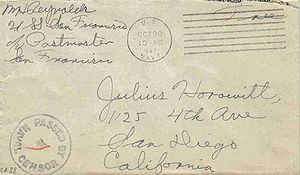 21 St San Francisco
c/o Postmaster
San Francisco
U.S.
OCT 30
10 AM
NAVY
Julius Horowitt,
1125 4th Ave
San Diego
California
NAVAL
PASSED BY
CENSOR